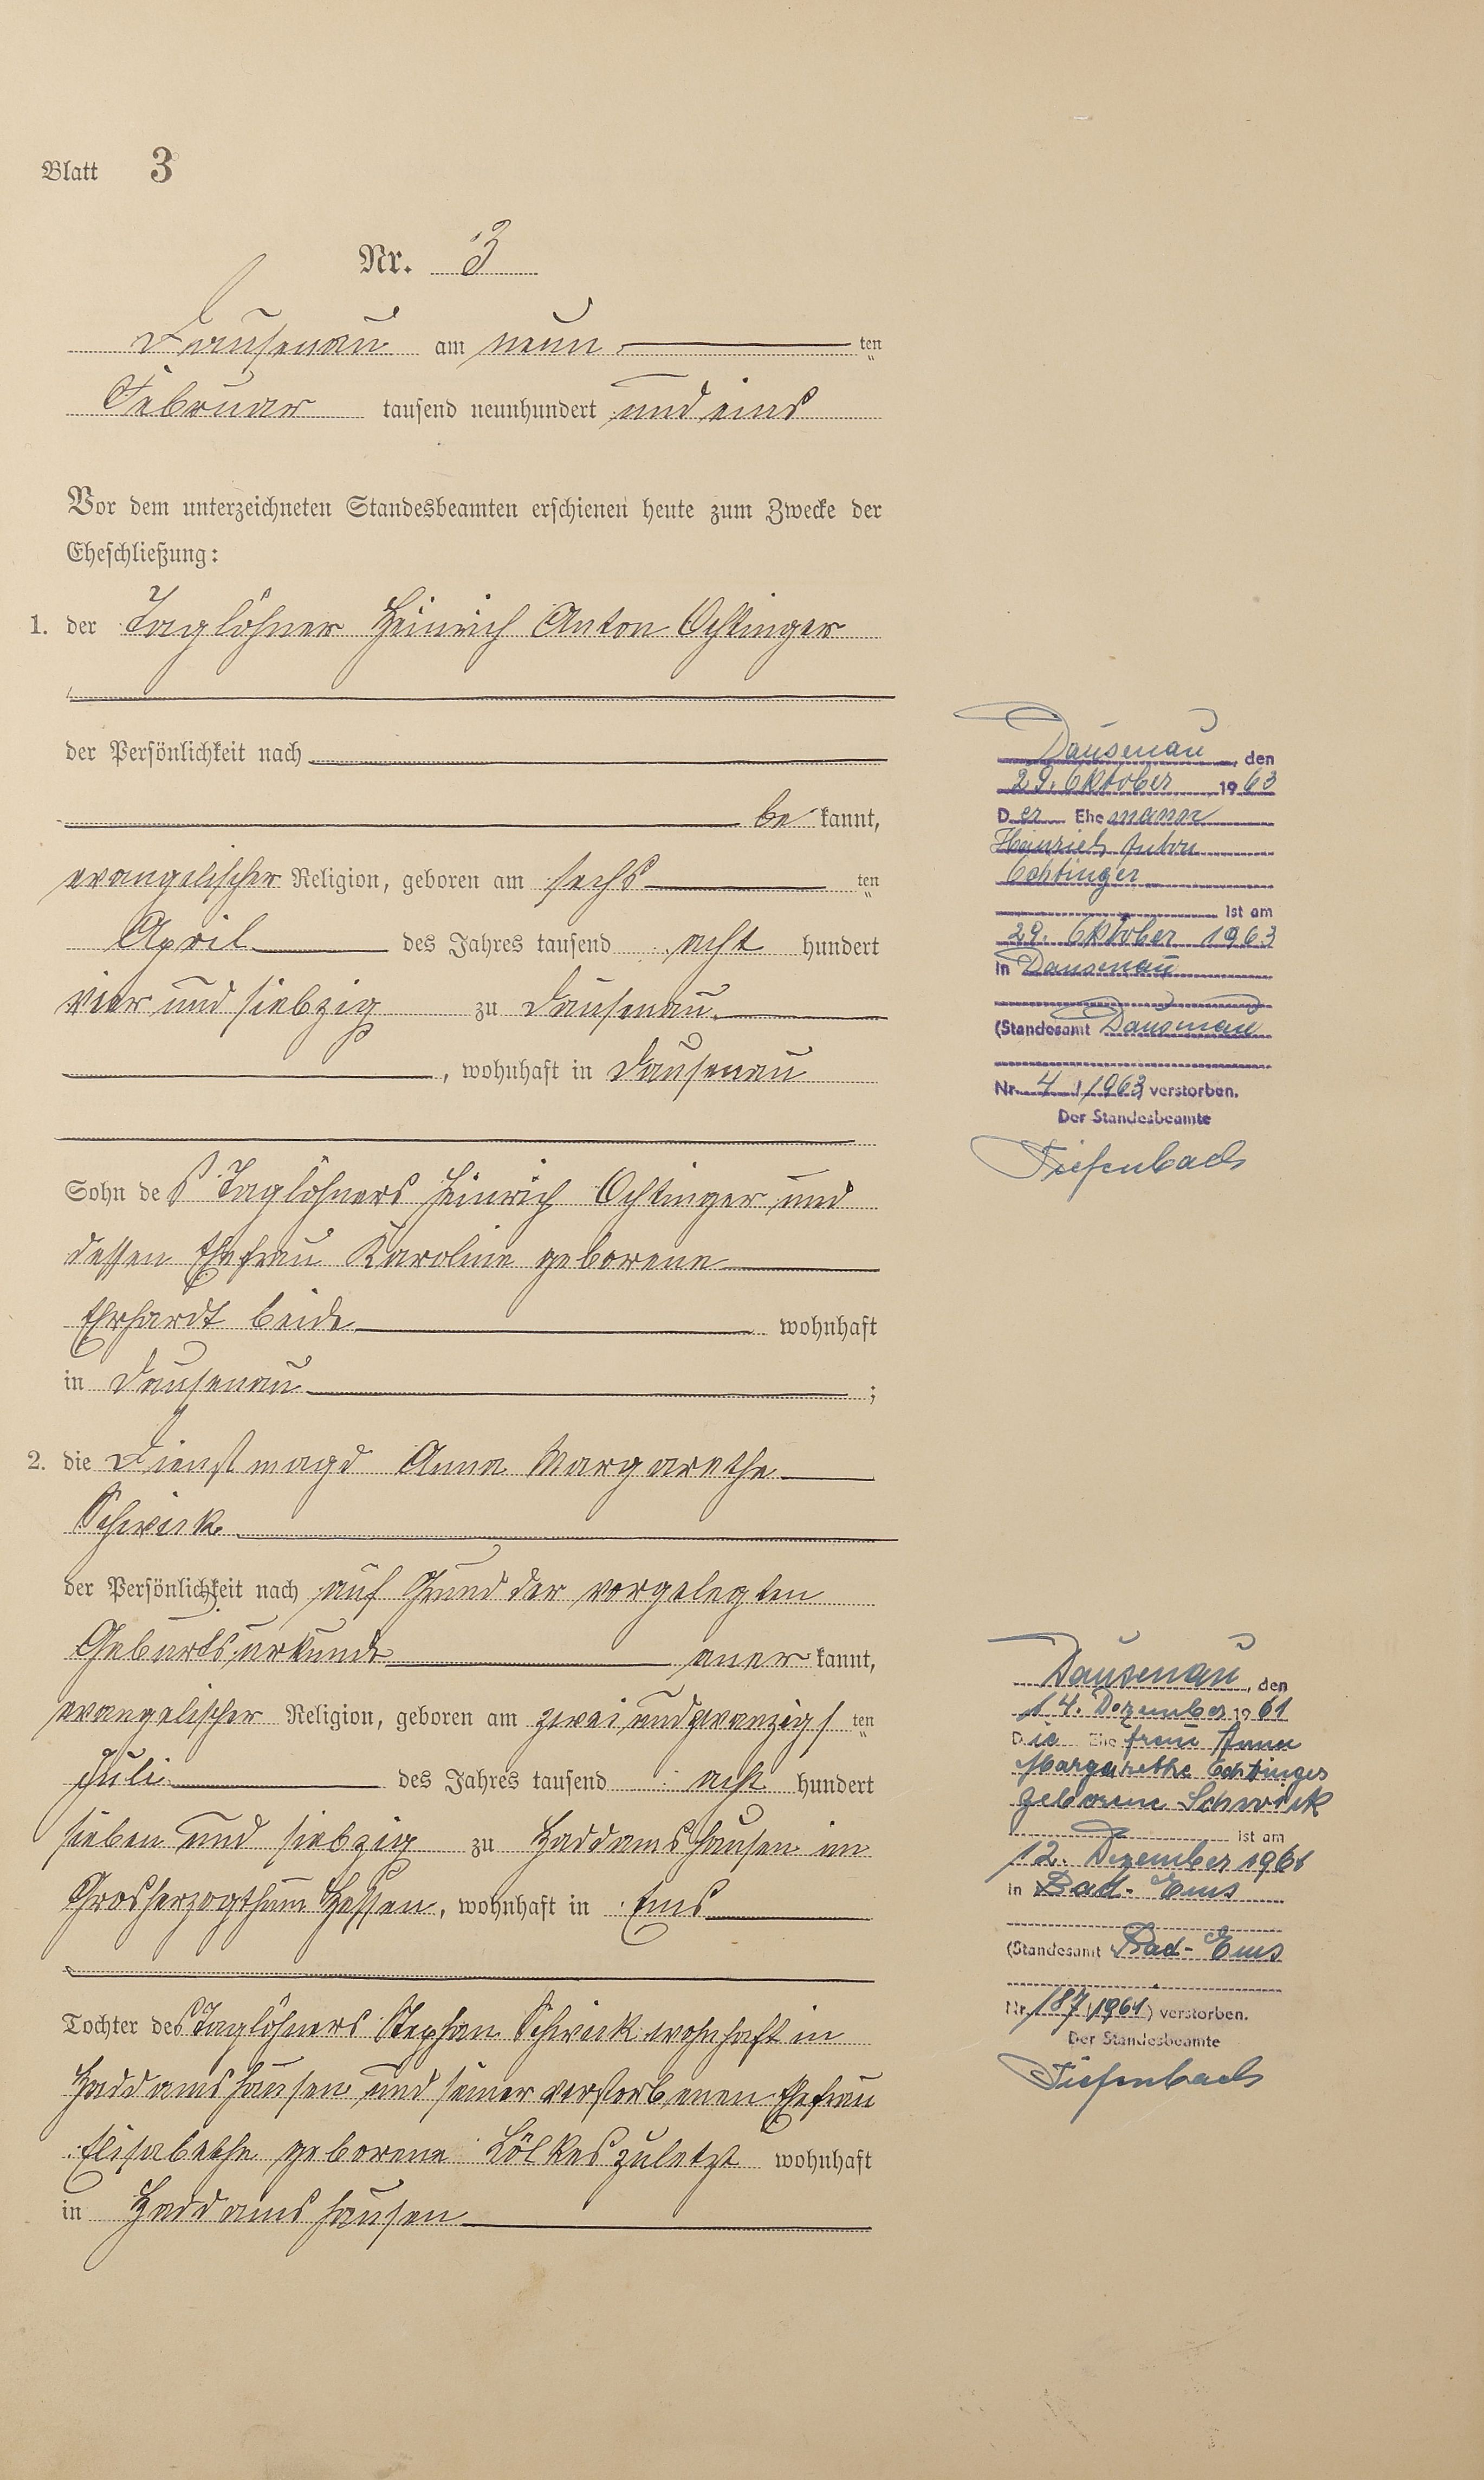 Blatt 3
Nr. 3
Dausenau am neun ten
Februar tausend neunhundert und eins
Vor dem unterzeichneten Standesbeamten erschienen heute zum Zwecke der
Eheschließung:
1. der Taglöhner Heinrich Anton Ochtinger
der Persönlichkeit nach
be kannt,
evangelischer Religion, geboren am sechs ten
April des Jahres tausend acht hundert
vier und siebzig zu Dausenau
, wohnhaft in Dausenau
Sohn des Taglöhners Heinrich Ochtinger und
dessen Ehefrau Karoline geborene
Ehrhardt beide wohnhaft
in Dausenau ;
2. die Dienstmagd Anna Margarethe
Schwink
der Persönlichkeit nach auf Grund der vorgelegten
Geburtsurkunde aner kannt,
evangelischer Religion, geboren am zwei und zwanzigs ten
Juli des Jahres tausend acht hundert
sieben und siebzig zu Haddamshausen im
Grosherzogthum Hessen, wohnhaft in Ems
Tochter des Taglöhners Stephan Schwink wohnhaft in
Haddamshausen und seiner verstorbenen Ehefrau
Elisabethe geborene Lölkes zuletzt wohnhaft
in Haddamshausen
Dausenau, den
29. Oktober 1963
Der Ehemann
Heinrich Anton
Ochtinger
ist am
29. Oktober 1963
in Dausenau
(Standesamt Dausenau
Nr. 4 / 1963) verstorben.
Der Standesbeamte
Tiefenbach
Dausenau, den
14. Dezember 1961
Die Ehefrau Anna
Margarethe Ochtinger
geborene Schwink
ist am
12. Dezember 1961
in Bad-Ems
(Standesamt Bad-Ems
Nr. 187/1961) verstorben.
Der Standesbeamte
Tiefenbach